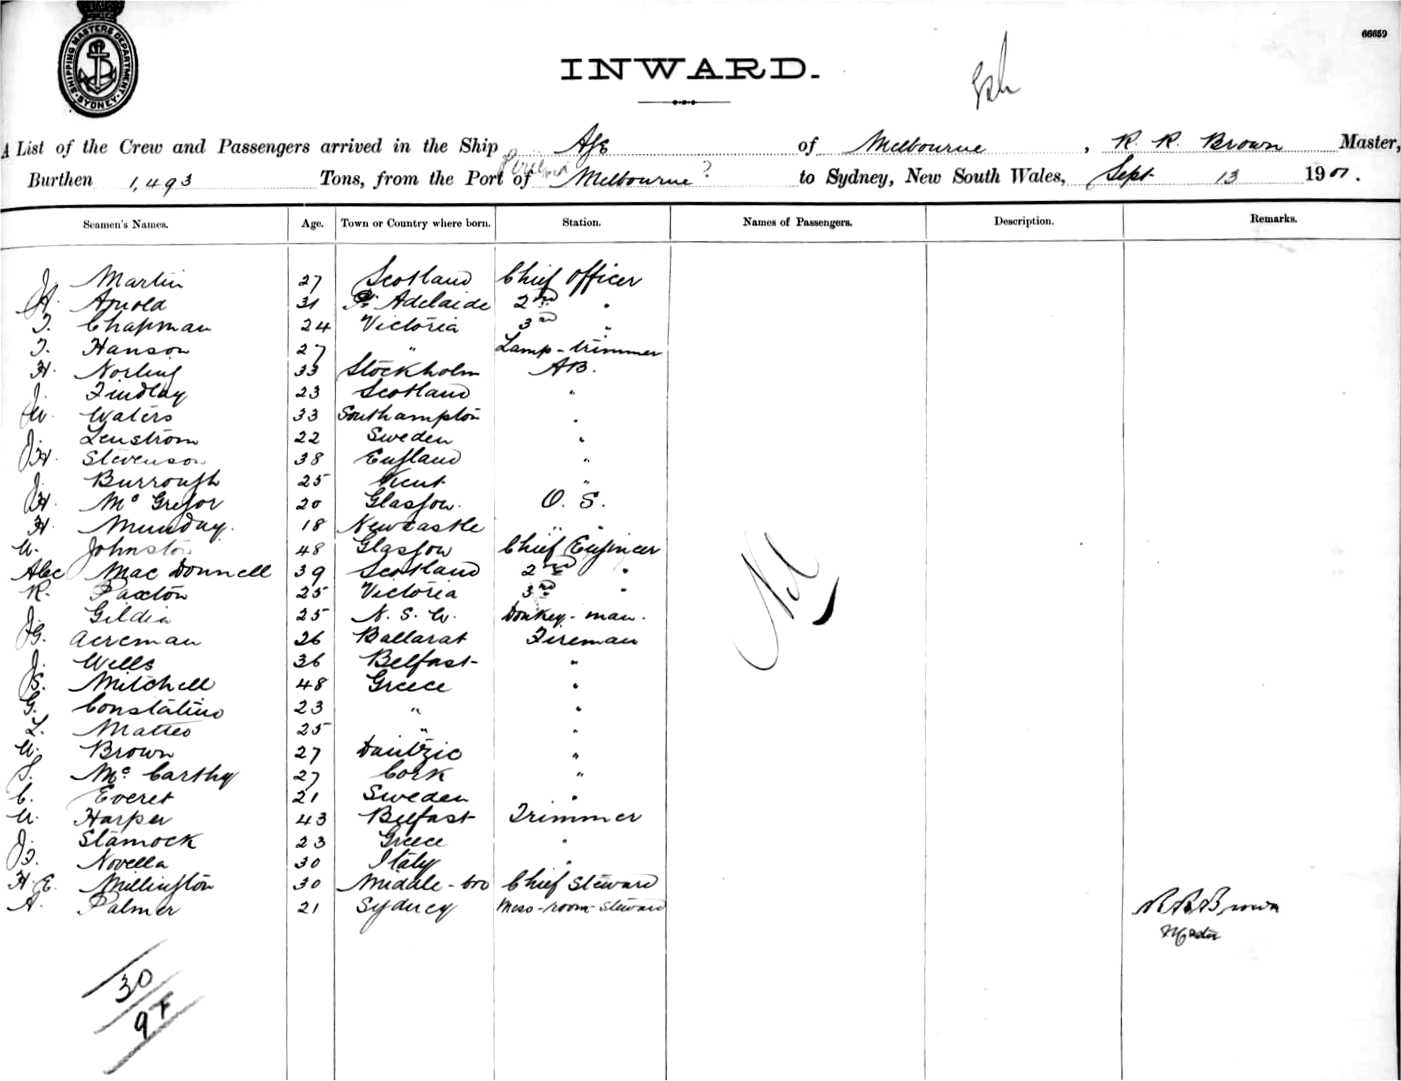 SHIPPING MASTERS DEPARTMENT. SYDNEY.
66659
INWARD.
A List of the Crew and Passengers arrived in the Ship Age of Melbourne, R. R. Brown Master,
Burthen 1,493 Tons, from the Port of Melbourne? to Sydney, New South Wales, Sept 13 1901.
Seamen's Names. Age. Town or Country where born. Station. Names of Passengers. Description. Remarks.
J. Martin 27 Scotland Chief Officer
A. Arnold 31 Pt Adelaide 2nd "
T. Chapman 24 Victoria 3rd "
T. Hanson 27 " Lamp-trimmer
H. Norling 33 Stockholm AB.
J. Findlay 23 Scotland "
W. Waters 33 Southampton "
J. Lenstrom 22 Sweden "
H. Stevenson 38 England "
J. Burrough 25 Kent "
H. Mc Gregor 20 Glasgow. O. S.
H. Munday. 18 Newcastle " "
W. Johnston 48 Glasgow Chief Engineer
Alec Mac Donnell 39 Scotland 2nd "
R. Paxton 25 Victoria 3rd "
J. Gildia 25 N. S. W. Donkey-man.
G. Acreman 26 Ballarat Fireman
J. Wells 36 Belfast "
S. Mitchell 48 Greece "
G. Constatino 23 " "
L. Matteo 25 " "
W. Brown 27 Dantzic "
T. Mc Carthy 27 Cork "
C. Everet 21 Sweden "
W. Harper 43 Belfast Trimmer
J. Stamock 23 Greece "
F. Novella 30 Italy "
H. E. Millington 30 Middle-bro Chief Steward
A. Palmer 21 Sydney Mess-room-Steward
Nil
R R Brown
Master
30
97